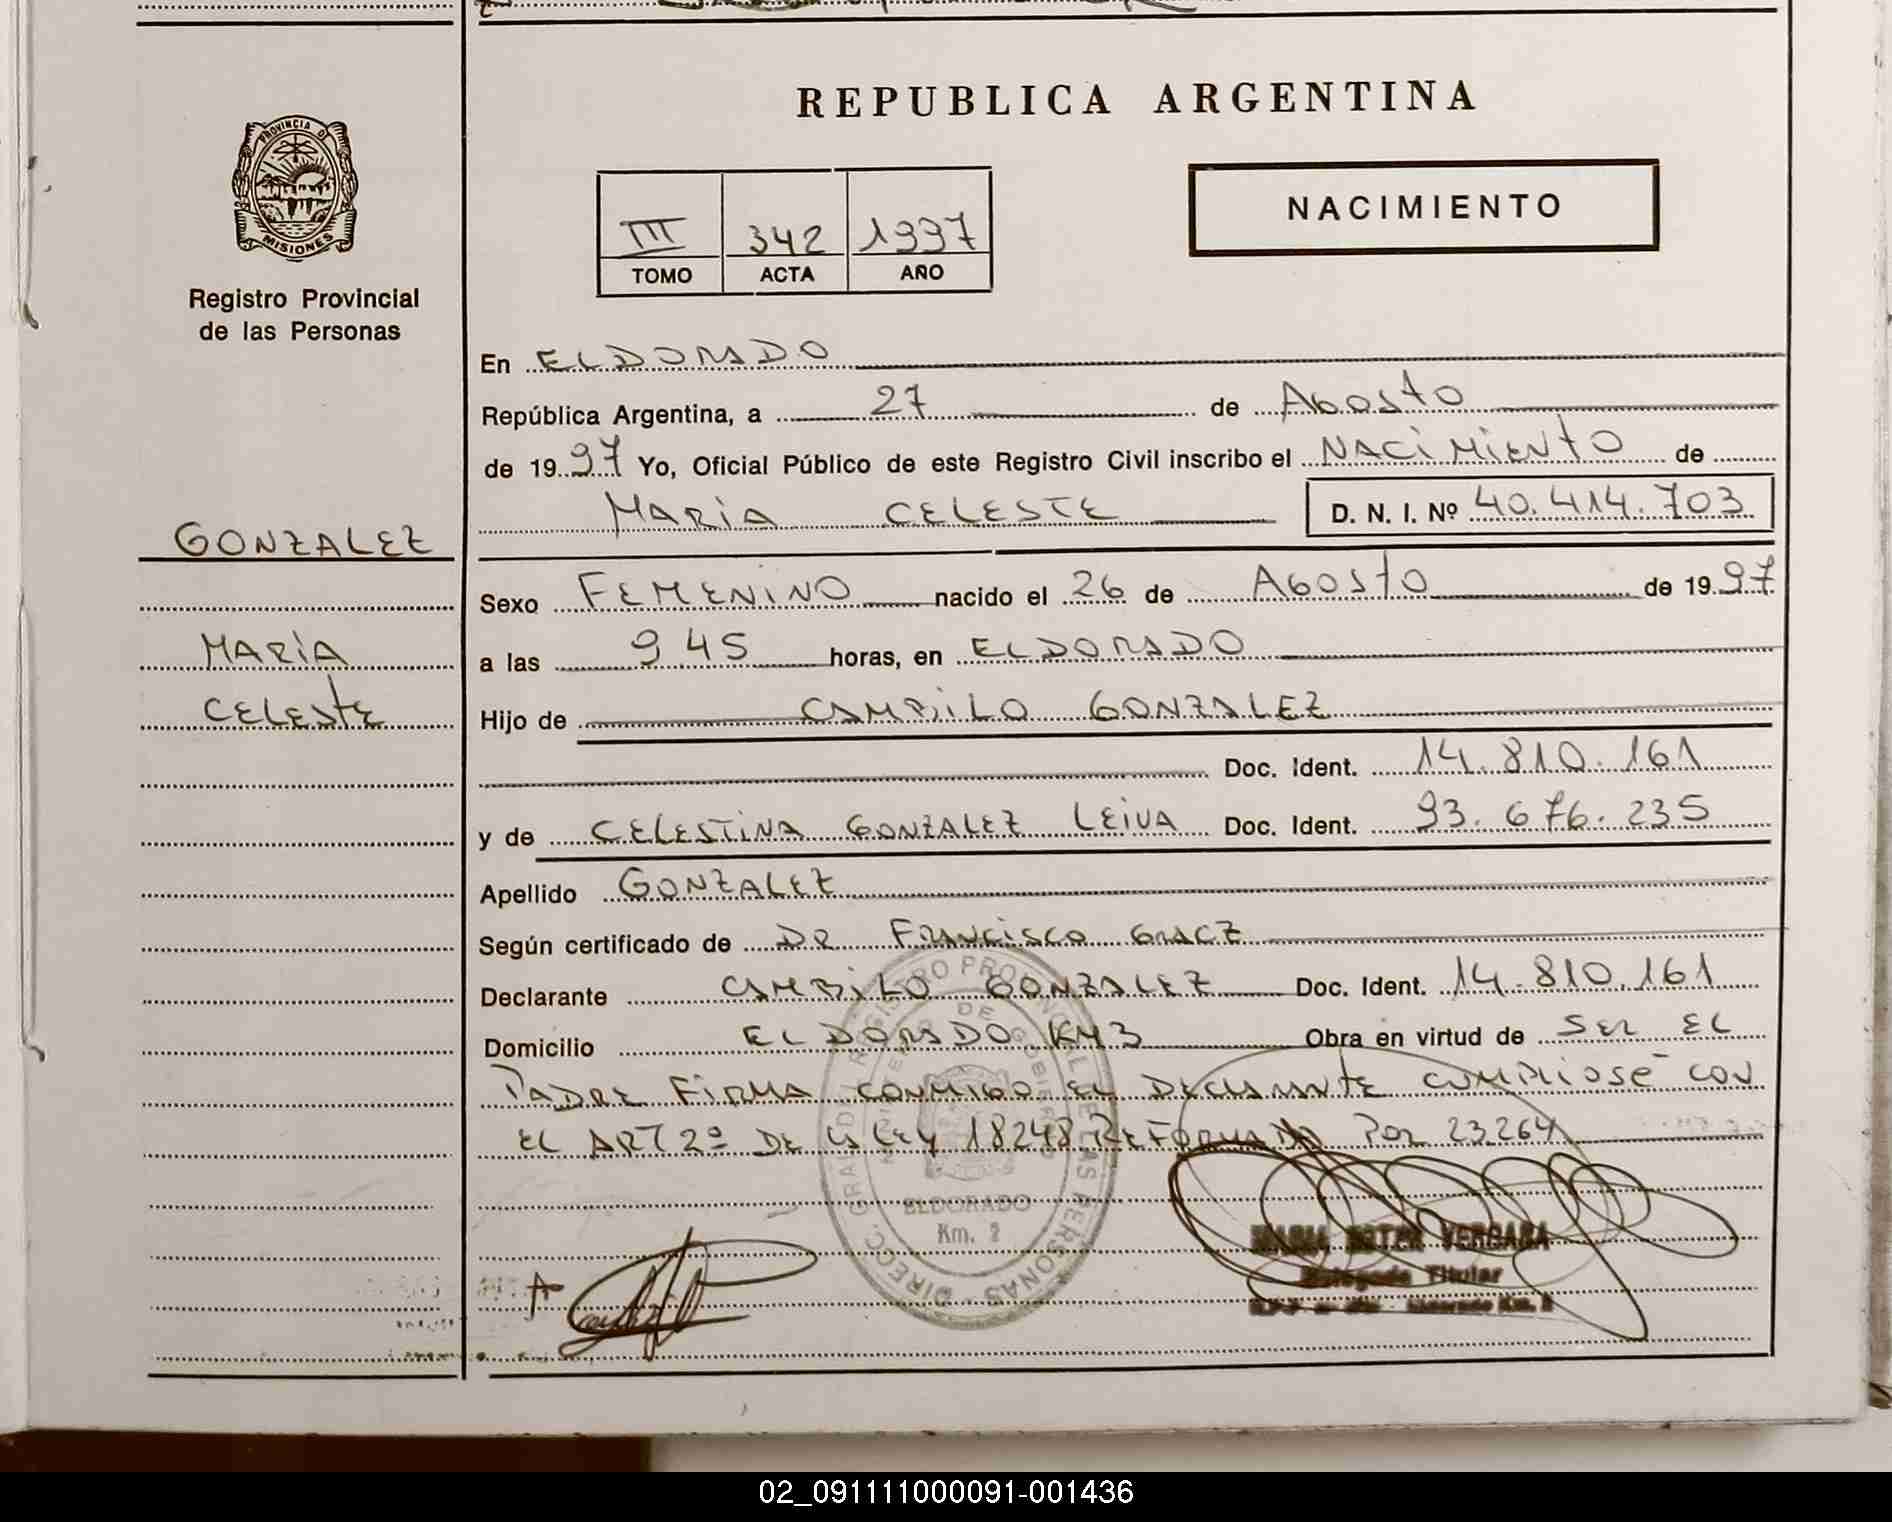 REPUBLICA ARGENTINA
PROVINCIA DE
MISIONES
Registro Provincial
de las Personas
III 342 1997
TOMO ACTA AÑO
NACIMIENTO
En ELDORADO
República Argentina, a 27 de Agosto
de 1997 Yo, Oficial Público de este Registro Civil inscribo el NACIMIENTO de
MARIA CELESTE D. N. I. Nº 40.414.703
GONZALEZ
MARIA
CELESTE
Sexo FEMENINO nacido el 26 de Agosto de 1997
a las 9 45 horas, en ELDORADO
Hijo de CAMBILO GONZALEZ
Doc. Ident. 14.810.161
y de CELESTINA GONZALEZ LEIVA Doc. Ident. 93.676.235
Apellido GONZALEZ
Según certificado de DR FRANCISCO
Declarante CAMBILO GONZALEZ Doc. Ident. 14.810.161
Domicilio ELDORADO KM 3 Obra en virtud de SER EL
PADRE FIRMA CONMIGO EL DECLARANTE CUMPLIOSE CON
EL ART 2º DE LA LEY 18248 REFORMADO POR 23.264
DIRECC. GRAL. DEL REGISTRO PROVINCIAL DE LAS PERSONAS
MINISTERIO DE GOBIERNO
ELDORADO
Km. 2
VERGARA
Delegada Titular
02_091111000091-001436